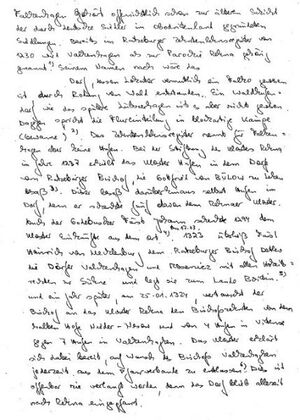 Falkenhagen gehört offensichtlich schon zur älteren Schicht
der durch deutsche Siedler im Obodritenland gegründeten
Siedlungen. Bereits im Ratzeburger Zehntlehnregister von
1230 wird Valkenhagen als zur Parochie Rehna gehörig
genannt¹⁾ Seinem Namen nach wäre das
Dorf, dessen Lokator vermutlich ein Falko gewesen
ist durch Roden von Wald entstanden. Ein Waldhufen-
dorf wie das spätere ist es aber nicht gewesen.
Dagegen spricht die Flureinteilung in blockartige Kämpe
(Gewanne)²⁾. Das Zehntlehnregister nennt für Falken-
hagen aber keine Hufen. Bei der Stiftung des Klosters Rehna
im Jahre 1237 erhielt das Kloster Hufen in dem Dorf
vom Ratzeburger Bischof, die Gottfried von Bülow zu Lehen
besaß³⁾. Dieser besaß darüber hinaus selbst Hufen im
Dorf, denn er schenkte fünf davon dem Rehnaer Kloster.
Auch der Gadebuscher Fürst Johann schenkte 1294 dem
Kloster Einkünfte aus dem Ort. 1323 überließ
Heinrich von Mecklenburg dem Ratzeburger Bischof
die Dörfer Valkenhagen und mit allen
zur Sühne und legt sie zum Lande Boitin.
und ein Jahr später, am 25.01.1324 vertauscht der
Bischof an das Kloster Rehna den Bischofzehnten von dem
halben Hofe und von 4 Hufen in Vitense
gegen 7 Hufen in Valkenhagen. Das Kloster erklärt
sich dabei bereit, auf Wunsch des Bischofs Valkenhagen
jederzeit aus dem Pfarrverbande zu entlassen. Dies ist
offenbar nie verlangt worden, denn das Dorf blieb allezeit
nach Rehna eingepfarrt.